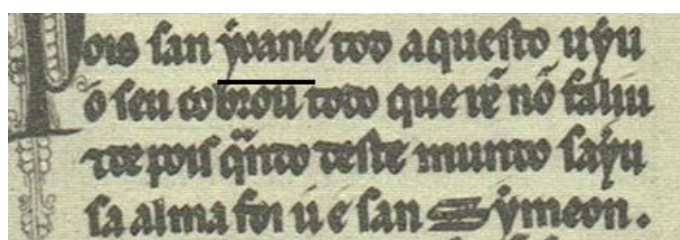 Pois san ẏoane tod aquesto uẏu
o seu cobrou todo que rẽ nõ faliu
τ depois qnto deste mundo saẏu
sa alma foi u é san Sẏmeon.